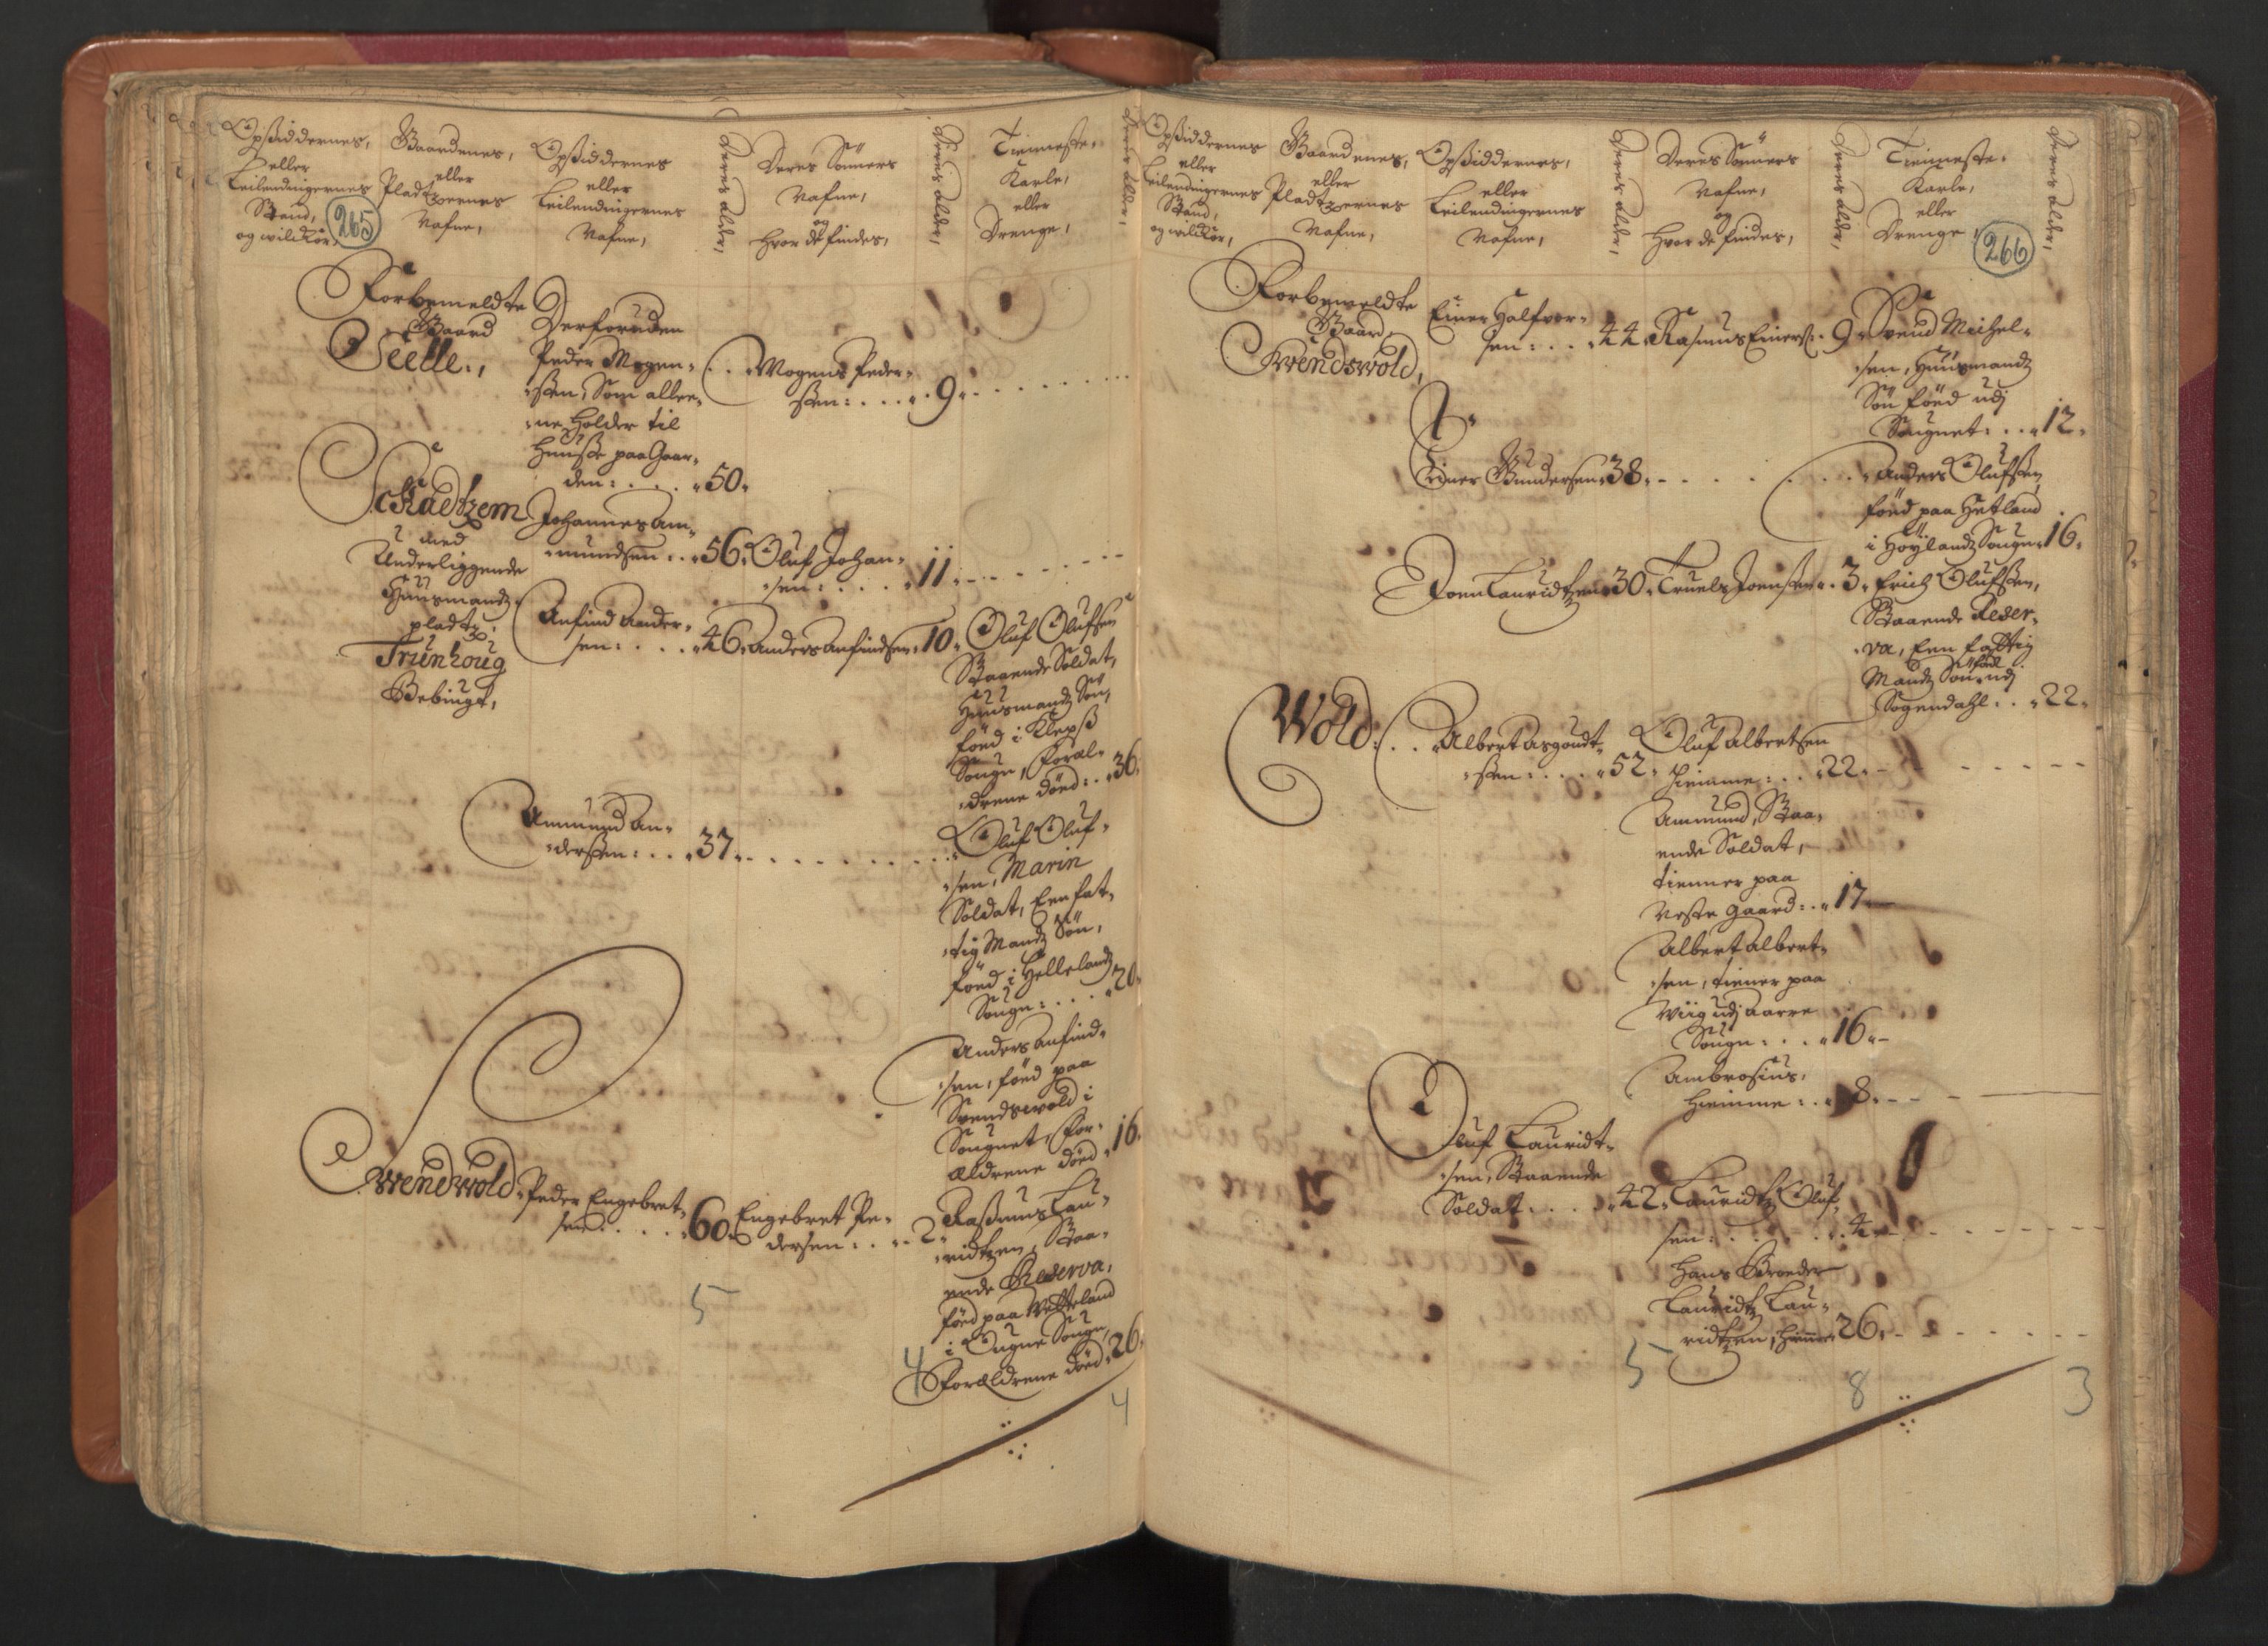 Opsiddernes,
eller
Leilendingernes
Stand,
og wilckor,
265
Gaardenes,
eller
Pladtzernes
Nafne,
Opsiddernes
eller
Leilendingernes
Nafne,
Deres alder,
Deres Sönners
Nafne,
og
hvor de findes,
Deres alder,
Tienneste,
Karle,
eller
Drenge,
Deres alder,
Forbemeldte
Gaard
Seelle.,
Derforuden
Peder Mogen=
=sen, Som alle=
=ne holder til
huusse paa Gaar=
den: . . . 50.
Mogens Peder=
sen: . . . 9.
Schadtzem
med
Underliggende
Huusmandz
pladtz,
Trünhoüg
Bebiugt,
Johannes am=
=mundsen . . 56.
Oluf Johan=
=sen: . . . 11.
Anfind Ander=
sen: . . . 46.
Anders Anfindsen. 10.
Oluf Olufsen
Staaende Soldat,
Huusmandz Sön,
föed i Klepss
Sougn, foræl=
=drene döed: . 36.
Ammund An=
=dersen: . . . 37.
Oluf Oluf=
=sen, Marin
Soldat, Een fat=
=tig Mandz Sön,
föed i Hellelandz
Sougn: . . . 20.
Anders Anfind=
=sen, föed paa
Svendswold i
Sougnet, for=
ældrene döed 16.
Svendswold.
Peder Engebret=
sen: . . . 60.
Engebret Pe=
dersen: . . . 2.
Rassmus Lau=
=ridtzen, Staa=
ende Reserva,
föed paa Wetteland
i Ougne Sougn,
Forældrene döed, 26.
5
4
4
Opsiddernes
eller
Leilendingernes
Stand,
og wilckor,
Gaardenes,
eller
Pladtzernes
Nafne,
Opsiddernes,
eller
Leilendingernes
Nafne,
Deres alder,
Deres Sönners
Nafne,
og
hvor de findes,
Deres alder,
Tienneste.
Karle,
eller
Drenge,
266
Deres alder,
Forbemeldte
Gaard,
Svendswold,
Einer Halfvor=
sen: . . . 44.
Rasmus Einers: 9.
Svend Michel=
=sen, Huusmandz
Sön föed udj
Sougnet: . . 12.
Einer Gundersen. 38.
Anders Olufsen,
föed paa Hetland
i Höylandz Sougn. 16.
Joen Lauridtzen. 30.
Truels Joensen . 3.
Erich Olufsen,
Staaende Reser=
=va, Een fattig
Mandz Sön, föed udj
Sogendahl: . . 22.
Wold:
Albert Asgoudt=
=sen: . . . 52.
Oluf Albertsen
hiemme: . . 22.
Ammund, Staa=
ende Soldat,
tienner paa
Westre gaard: . 17.
Albert Albert=
=sen, tiener paa
Wiig udj Aarre
Sougn: . . . 16.
Ambrosius,
hiemme: . . 8.
Oluf Lauridt=
=sen, Staaende
Soldat . . . 42.
Lauridtz Oluf=
sen: . . . . 4.
Hans Broeder
Lauridtz Lau=
ridtzen, hiemme 26.
5
8
3